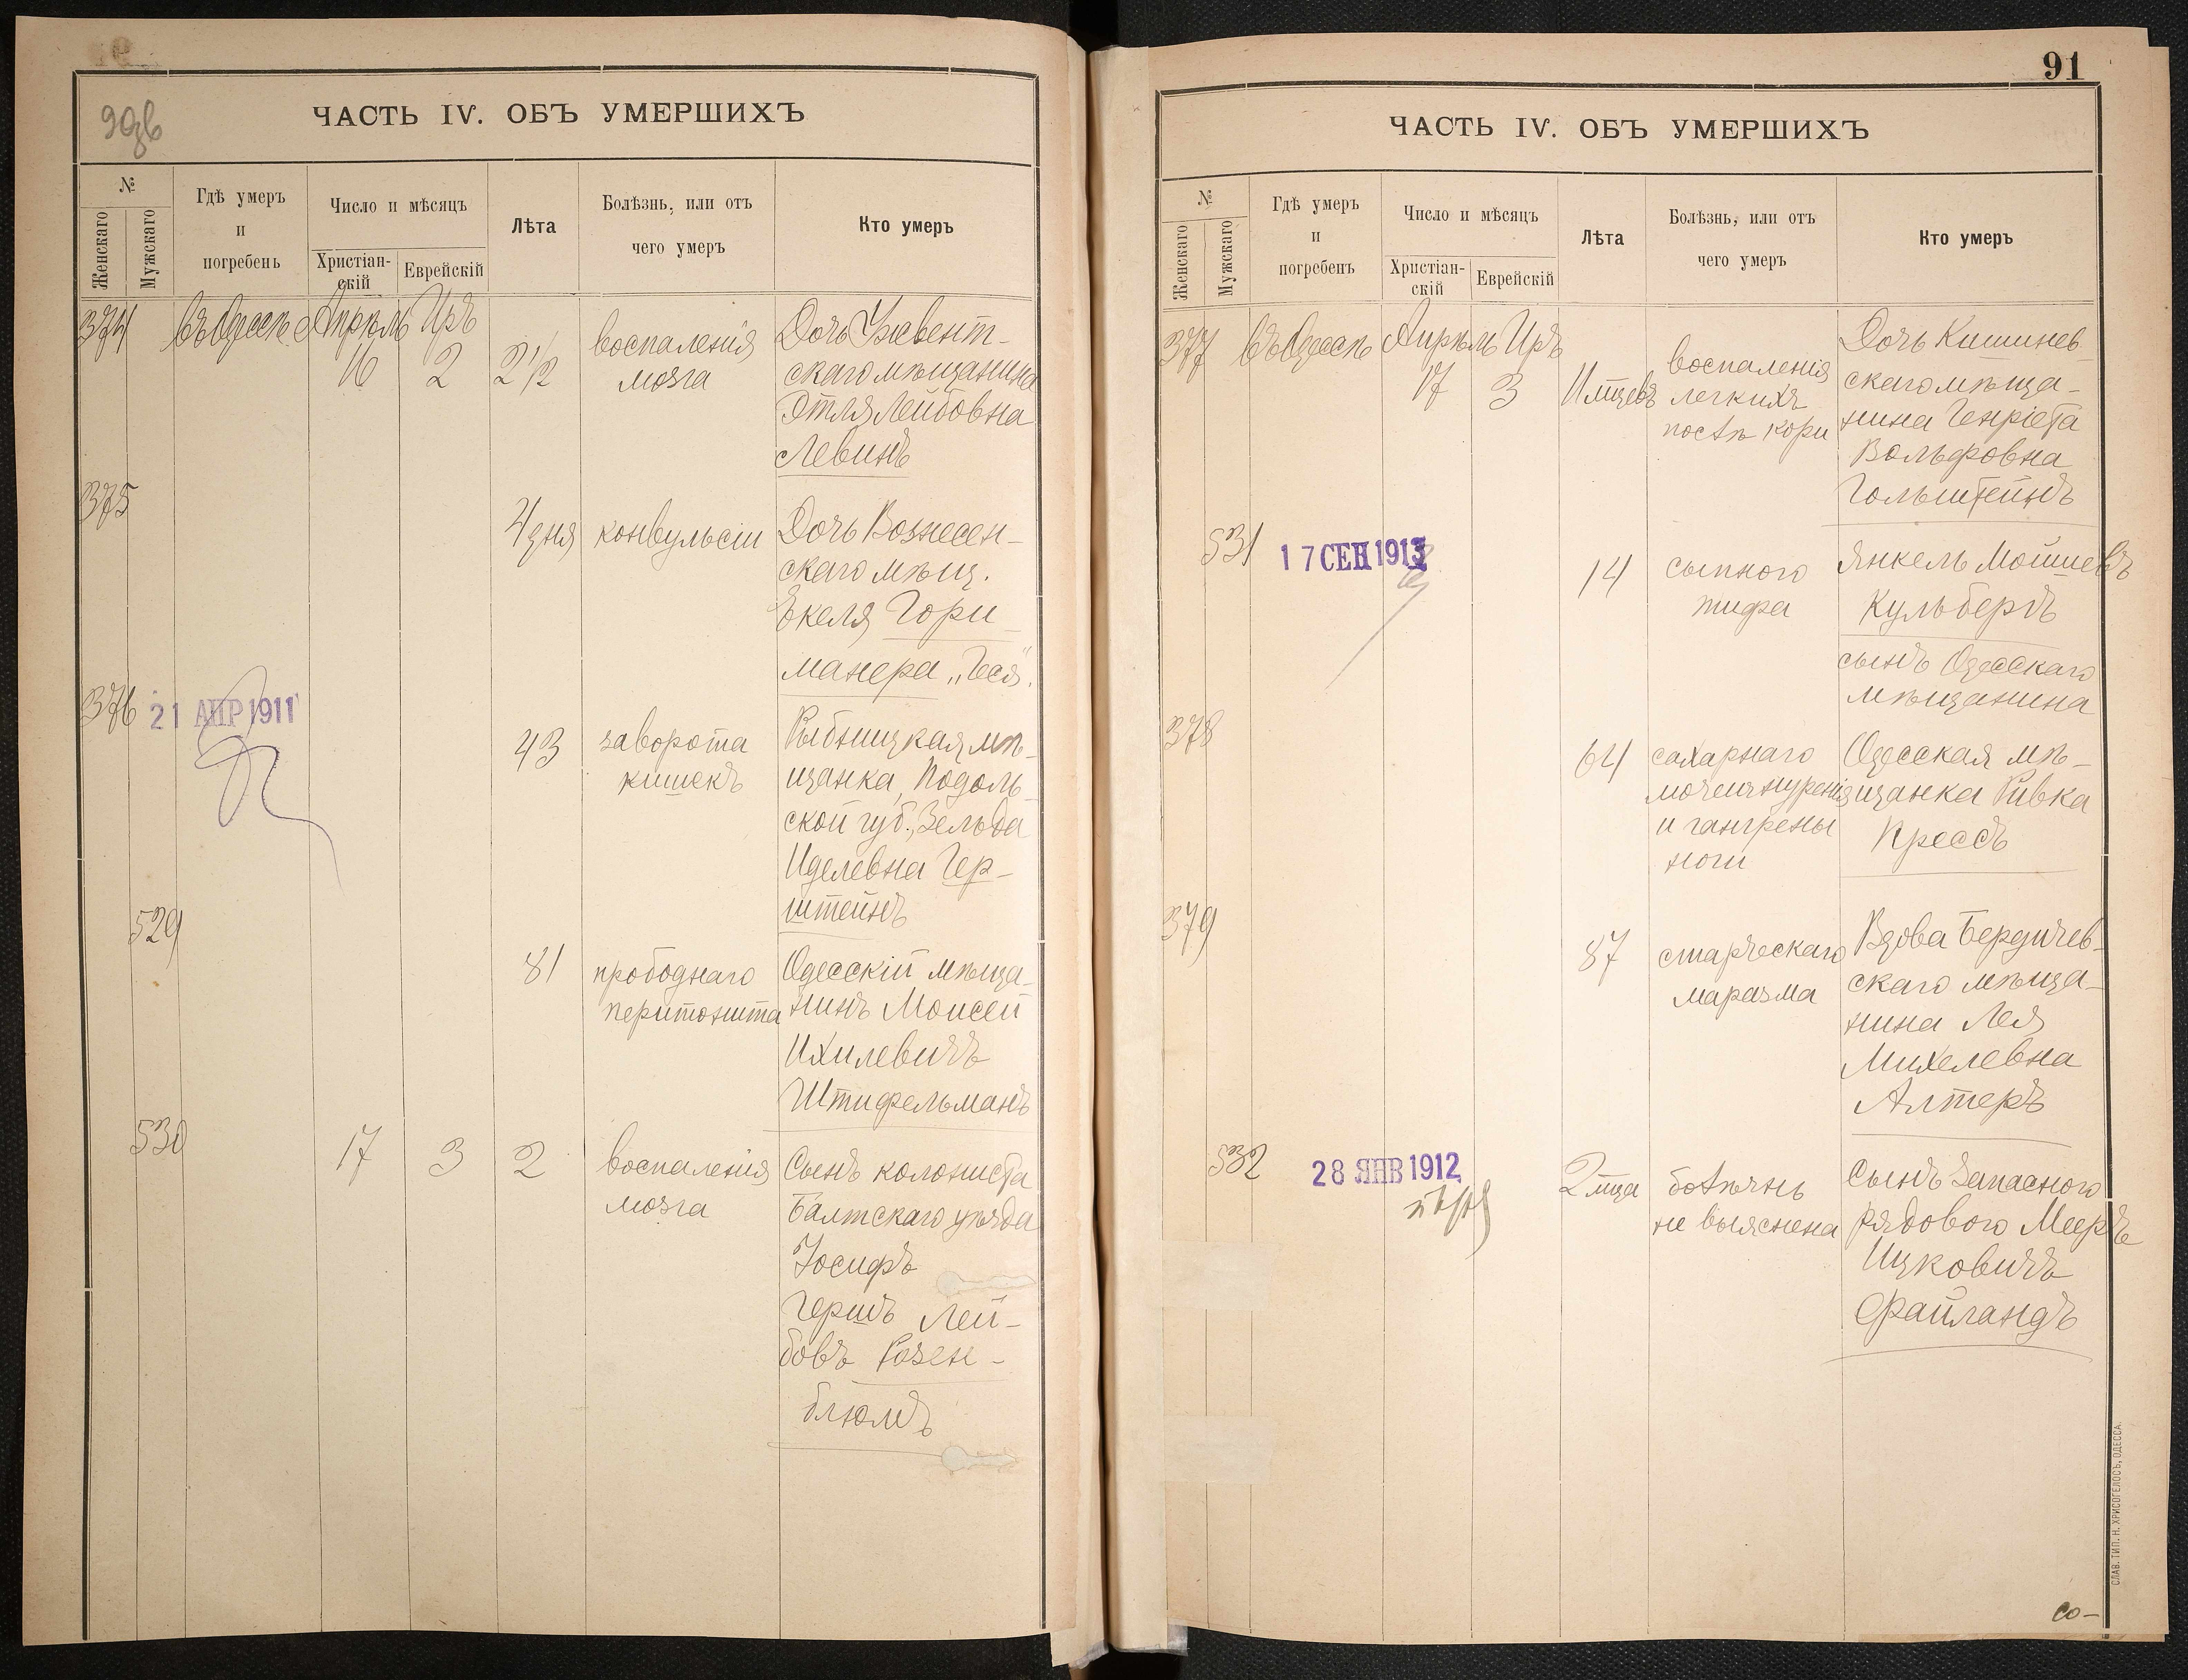 90об
ЧАСТЬ IV. ОБЪ УМЕРШИХЪ
№
Женскаго
Мужскаго
Гдѣ умеръ
и
погребенъ
Число и мѣсяцъ
Христіан-
скій
Еврейскій
Лѣта
Болѣзнь, или отъ
чего умеръ
Кто умеръ
374 въ Одессѣ Апрѣль Иръ
16 2 2½
воспаленія
мозга
Дочь
скаго мѣщанина
Этля Лейбовна
Левинъ
375
4 дня конвульсіи
Дочь Вознесен-
скаго мѣщ.
Екеля Гори-
манера „Геся".
376 21 АПР 1911
43 заворота
кишекъ
Рыбницкая мѣ-
щанка, Подоль-
ской губ., Зельда
Иделевна Гер-
штейнъ
529
81 прободнаго
перитонита
Одесскій мѣща-
нинъ Моисей
Ихилевичъ
Штифельманъ
530 17 3 2
воспаленія
мозга
Сынъ колониста
Балтскаго уѣзда
Іосифъ
Гершъ Лей-
бовъ Розен-
блюмъ
91
ЧАСТЬ IV. ОБЪ УМЕРШИХЪ
№
Женскаго
Мужскаго
Гдѣ умеръ
и
погребенъ
Число и мѣсяцъ
Христіан-
скій
Еврейскій
Лѣта
Болѣзнь, или отъ
чего умеръ
Кто умеръ
377 въ Одессѣ Апрѣль Иръ
17 3
воспаленія
легкихъ
послѣ кори
Дочь Кишинев-
скаго мѣща-
нина Генріета
Вольфовна
Гольштейнъ
531 17 СЕН 1913
14 сыпного
тифа
Янкель Мошиевъ
Кульбергъ
сынъ Одесскаго
мѣщанина
378
64 сахарнаго
мочеизнуренія
и гангрены
ноги
Одесская мѣ-
щанка Ривка
Крессъ
379
87 старческаго
маразма
Вдова Бердичев-
скаго мѣща-
нина Лея
Михелевна
Алтеръ
532 28 ЯНВ 1912
2 мца болѣзнь
не выяснена
Сынъ запасного
рядового Мееръ
Ицковичъ
Файландъ
СЛАВ. ТИП. Н. ХРИСОГЕЛОСЪ, ОДЕССА.
со-